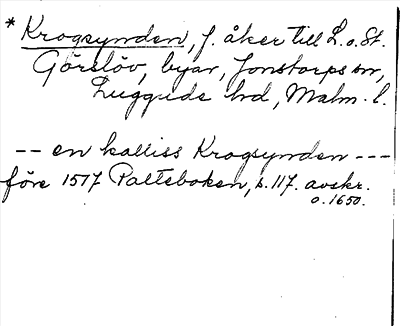 * Krogsynden, f. åker till L. o. St.
Görslöv, byar, Jonstorps sn,
Luggude hd, Malm. l.
-- en kalliss Krogsynden ---
före 1517 Palteboken, s. 117. avskr.
o. 1650.